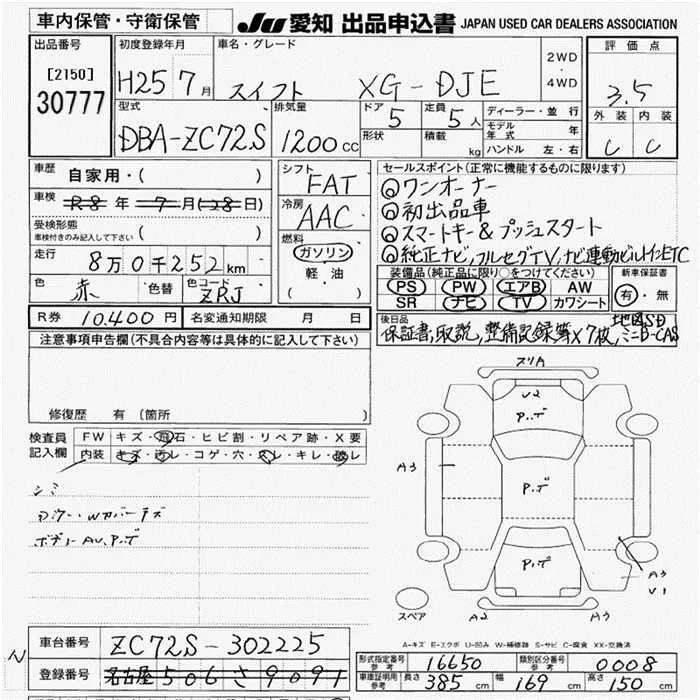 車内保管・守衛保管
JU 愛知 出品申込書 JAPAN USED CAR DEALERS ASSOCIATION
出品番号 初度登録年月 車名・グレード 2WD・4WD 評価点
[2150] 30777 H25 7月 スイフト XG-DJE 3.5
型式 排気量 ドア 5 定員 5人 ディーラー・並行 外装 内装
DBA-ZC72S 1200cc 形状 積載 kg モデル年式 年 C C
ハンドル 左・右
車歴 自家用・( ) シフト FAT セールスポイント(正常に機能するものに限ります)
車検 R8年 7月(28日) 冷房 AAC ワンオーナー
初出品車
受検形態 車検付きのみ記入して下さい ( ) 燃料 ガソリン スマートキー&プッシュスタート
走行 8万0千252km 軽・油 ( ) 純正ナビ,フルセグTV,ナビ連動ビルトインETC
装備品(純正品に限り○をつけてください) 新車保証書
色 赤 色替 色コード ZRJ PS PW エアB AW 有・無
SR ナビ TV カワシート
R券 10.400円 名変通知期限 月 日 後日品 地図SD
保証書,取説,整備記録簿×7枚,ミニB-CAS
注意事項申告欄(不具合内容等は具体的に記入して下さい)
修復歴 有 (箇所 )
検査員記入欄 FW キズ・飛石・ヒビ割・リペア跡・X要
内装 キズ・汚レ・コゲ・穴・スレ・キレ・破レ
シミ
ボデーAU、P.デ
スリA
U2
P.デ
A3
P.デ
P.デ
A3
U1
スペア A2 A3
A-キズ E-エクボ U-凹み W-補修跡 S-サビ C-腐食 XX-交換済
車台番号 ZC72S-302225
登録番号 名古屋 506 さ 9091
形式指定番号 参考 16650 類別区分番号 参考 0008
車庫証明用 参考 長さ 385cm 幅 169cm 高さ 150cm